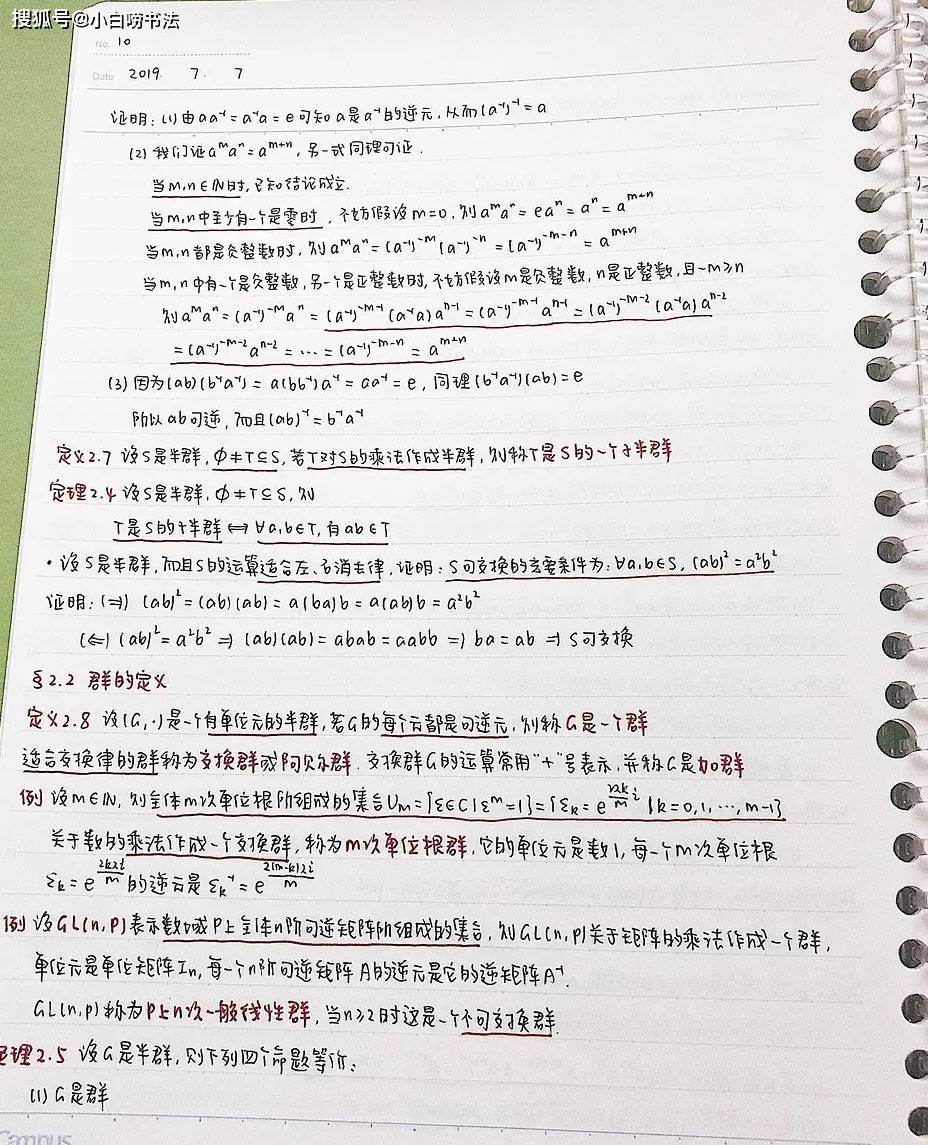 搜狐号@小白唠书法
No. 10
Date 2019. 7. 7
证明：(1) 由aa⁻¹=a⁻¹a=e可知a是a⁻¹的逆元，从而(a⁻¹)⁻¹=a
(2) 我们证aᵐaⁿ=aᵐ⁺ⁿ，另一式同理可证．
当m,n∈IN时，已知结论成立．
当m,n中至少有一个是零时，不妨假设m=0，则aᵐaⁿ=eaⁿ=aⁿ=aᵐ⁺ⁿ
当m,n都是负整数时，则aᵐaⁿ=(a⁻¹)⁻ᵐ(a⁻¹)⁻ⁿ=(a⁻¹)⁻ᵐ⁻ⁿ=aᵐ⁺ⁿ
当m,n中有一个是负整数，另一个是正整数时，不妨假设m是负整数，n是正整数，且-m≥n
则aᵐaⁿ=(a⁻¹)⁻ᵐaⁿ=(a⁻¹)⁻ᵐ⁻¹(a⁻¹a)aⁿ⁻¹=(a⁻¹)⁻ᵐ⁻¹aⁿ⁻¹=(a⁻¹)⁻ᵐ⁻²(a⁻¹a)aⁿ⁻²
=(a⁻¹)⁻ᵐ⁻²aⁿ⁻²=…=(a⁻¹)⁻ᵐ⁻ⁿ=aᵐ⁺ⁿ
(3) 因为(ab)(b⁻¹a⁻¹)=a(bb⁻¹)a⁻¹=aa⁻¹=e，同理(b⁻¹a⁻¹)(ab)=e
所以ab可逆，而且(ab)⁻¹=b⁻¹a⁻¹
定义2.7 设S是半群，∅≠T⊆S，若T对S的乘法作成半群，则称T是S的一个子半群
定理2.4 设S是半群，∅≠T⊆S，则
T是S的子半群⇔∀a,b∈T，有ab∈T
·设S是半群，而且S的运算适合左、右消去律，证明：S可交换的充要条件为：∀a,b∈S，(ab)²=a²b²
证明：(⇒) (ab)²=(ab)(ab)=a(ba)b=a(ab)b=a²b²
(⇐) (ab)²=a²b² ⇒ (ab)(ab)=abab=aabb ⇒ ba=ab ⇒ S可交换
§2.2 群的定义
定义2.8 设(G,·)是一个有单位元的半群，若G的每个元都是可逆元，则称G是一个群
适合交换律的群称为交换群或阿贝尔群．交换群G的运算常用"+"号表示，并称G是加群
例 设m∈IN，则全体m次单位根所组成的集合Uₘ={ε∈C|εᵐ=1}={εₖ=e^(2kπ/m i)|k=0,1,…,m-1}
关于数的乘法作成一个交换群，称为m次单位根群，它的单位元是数1，每一个m次单位根
εₖ=e^(2kπi/m)的逆元是εₖ⁻¹=e^(2(m-k)πi/m)
例 设GL(n,P)表示数域P上全体n阶可逆矩阵所组成的集合，则GL(n,P)关于矩阵的乘法作成一个群，
单位元是单位矩阵Iₙ，每一个n阶可逆矩阵A的逆元是它的逆矩阵A⁻¹．
GL(n,P)称为P上n次一般线性群，当n≥2时这是一个不可交换群．
定理2.5 设G是半群，则下列四个命题等价：
(1) G是群
Campus